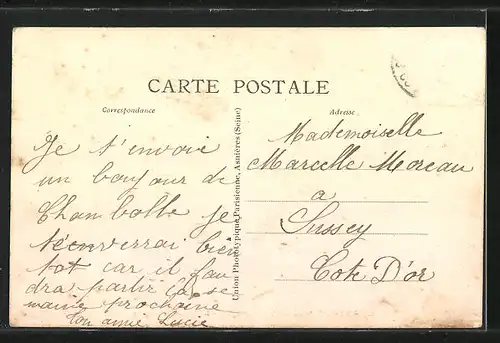 CARTE POSTALE
Correspondance
Adresse
Je t'envoie
un bonjour de
Chambolle je
t'écriverrai bien
tot car il fau
dra partir la se
maine prochaine
Ton amie Lucie
Union Phototypique Parisienne, Asnières (Seine)
Mademoiselle
Marcelle Moreau
a
Sussey
Cote D'or